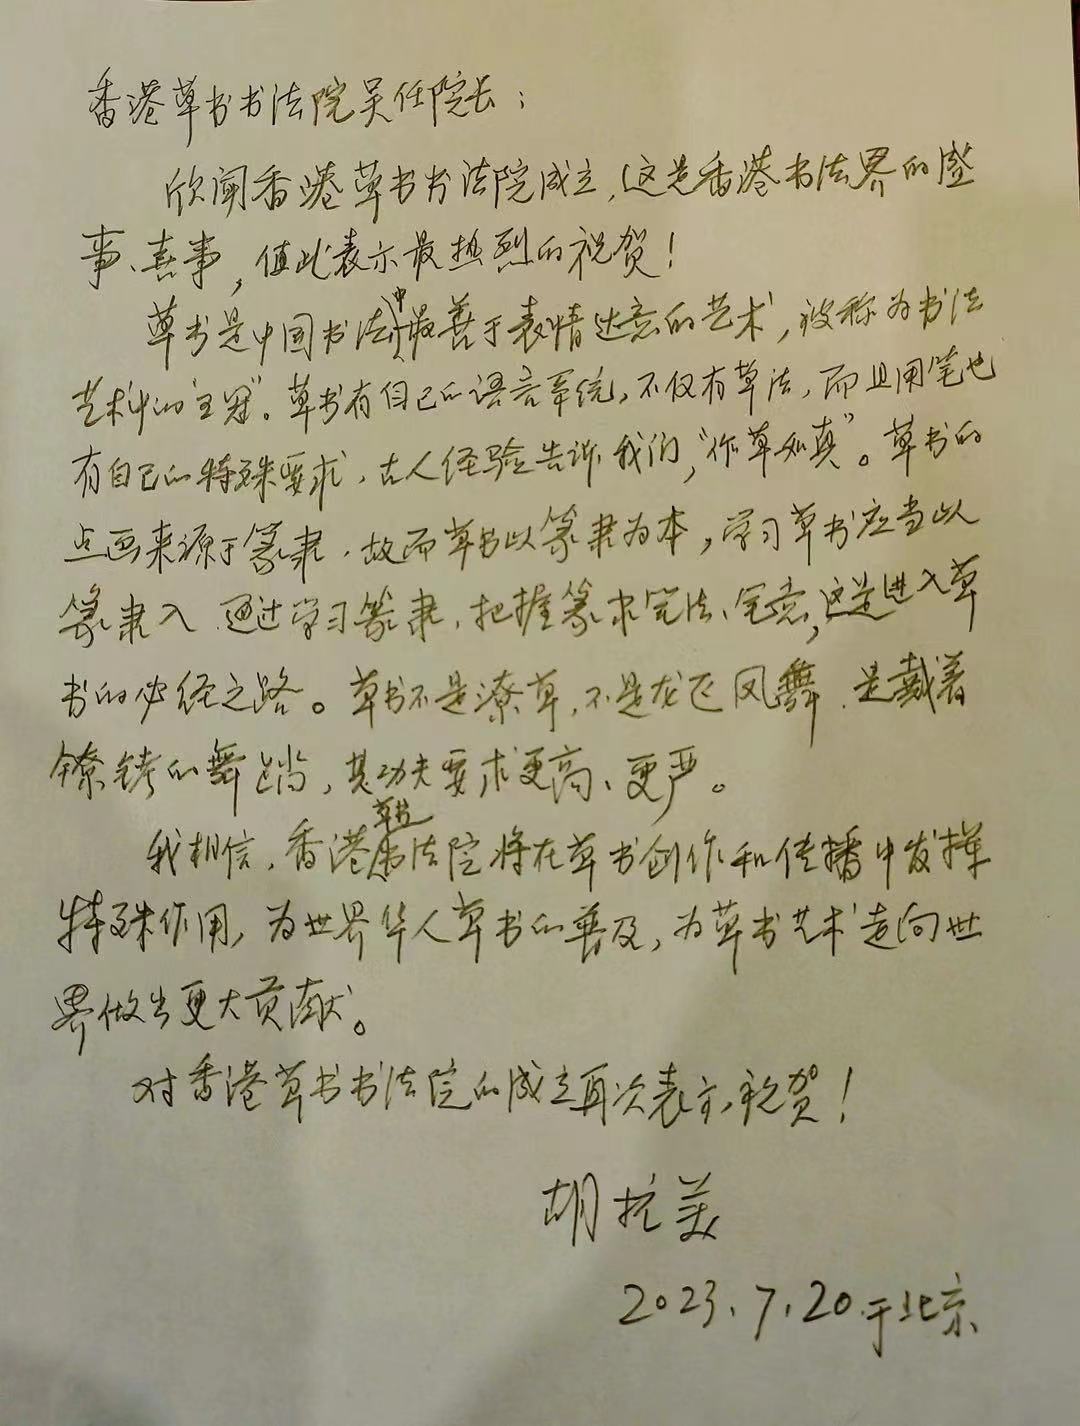 香港草书书法院吴任院长：
欣闻香港草书书法院成立，这是香港书法界的盛
事、喜事，值此表示最热烈的祝贺！
草书是中国书法中最善于表情达意的艺术，被称为书法
艺术中的"王冠"。草书有自己的语言系统，不仅有草法，而且用笔也
有自己的特殊要求，古人经验告诉我们，"作草如真"。草书的
点画来源于篆隶，故而草书以篆隶为本，学习草书应当以
篆隶入，通过学习篆隶，把握篆隶笔法、笔意，这是进入草
书的必经之路。草书不是潦草，不是龙飞凤舞，是戴着
镣铐的舞蹈，其功夫要求更高、更严。
我相信，香港草书书法院将在草书创作和传播中发挥
特殊作用，为世界华人草书的普及，为草书艺术走向世
界做出更大贡献。
对香港草书书法院的成立再次表示祝贺！
胡抗美
2023.7.20.于北京